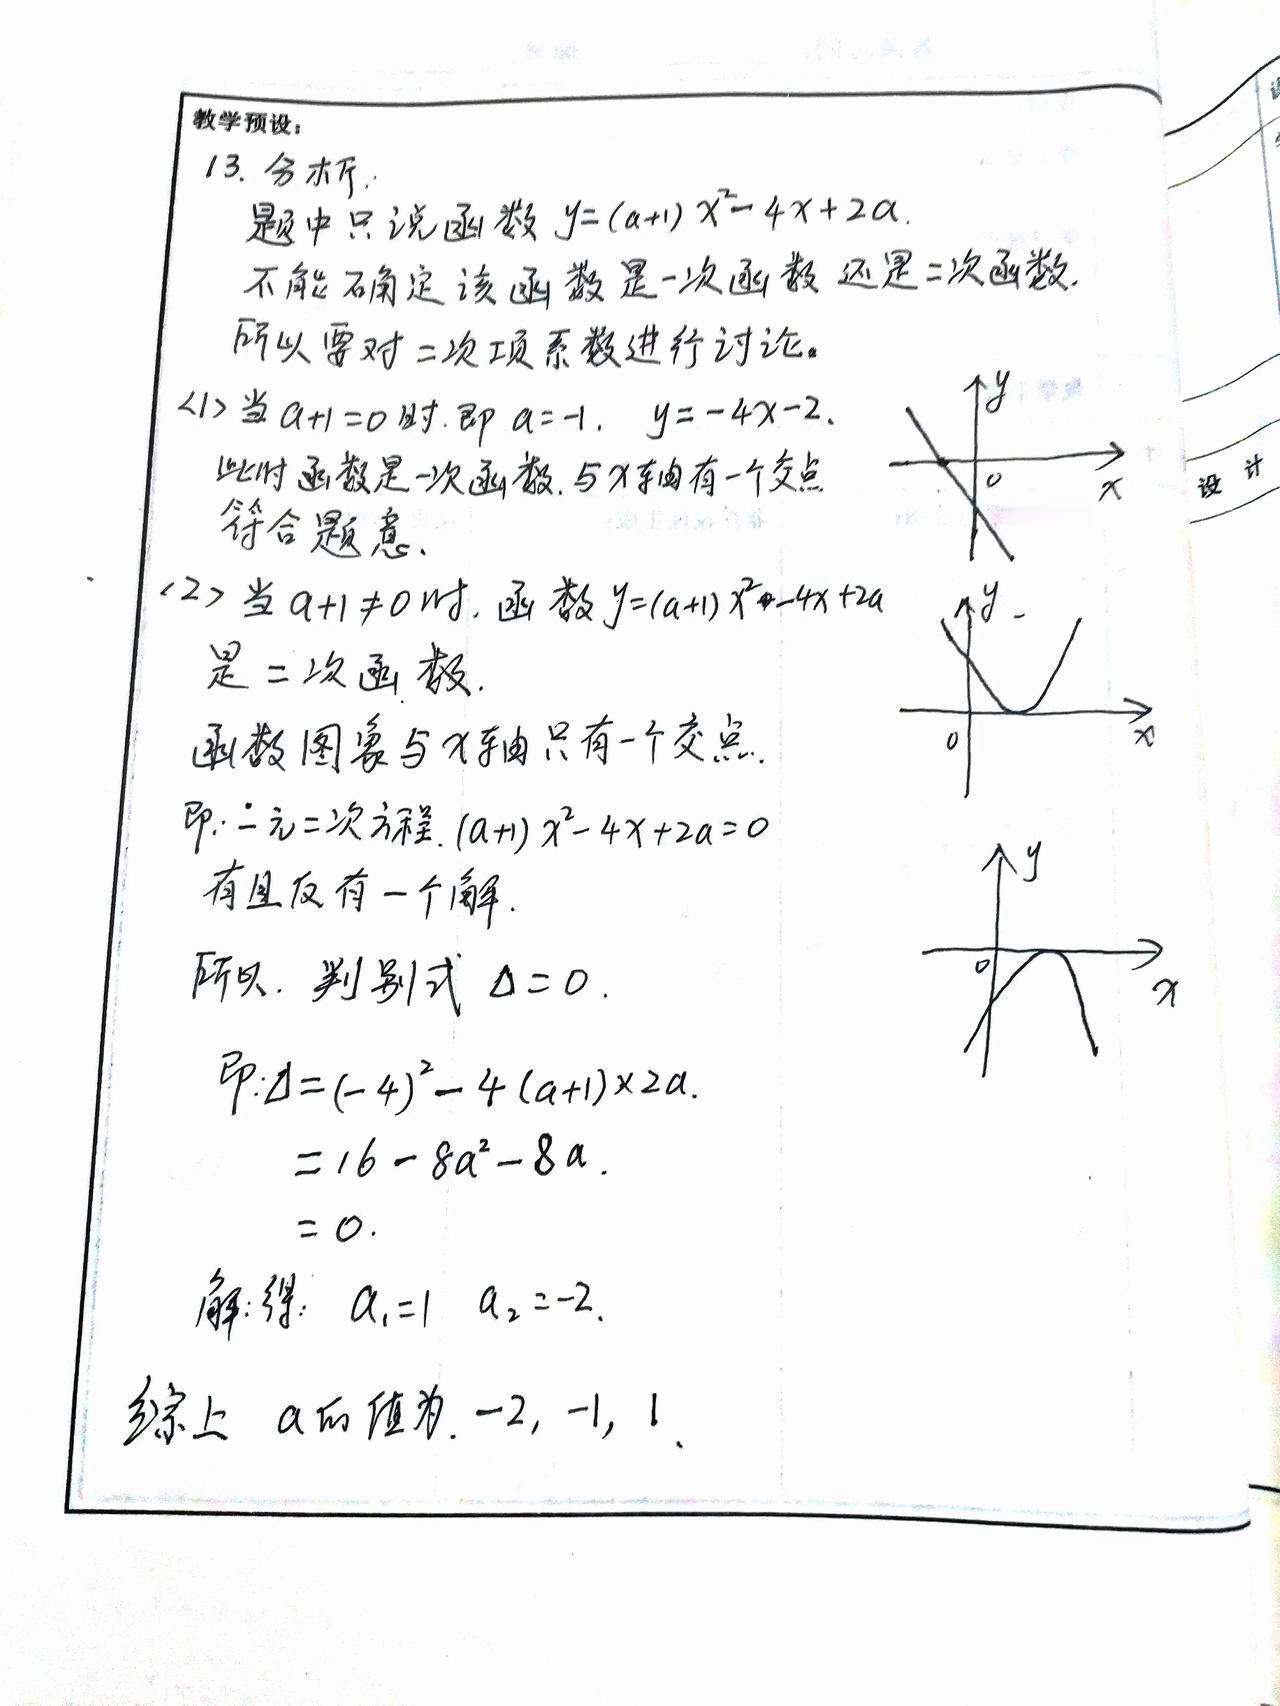 教学预设:
13. 分析:
题中只说函数 y=(a+1)x²-4x+2a.
不能确定该函数是一次函数还是二次函数.
所以要对二次项系数进行讨论。
<1> 当 a+1=0时. 即 a=-1. y=-4x-2.
此时函数是一次函数. 与x轴有一个交点
符合题意.
<2> 当 a+1≠0时. 函数 y=(a+1)x²-4x+2a
是二次函数.
函数图象与x轴只有一个交点.
即: 二元二次方程. (a+1)x²-4x+2a=0
有且仅有一个解.
所以. 判别式 Δ=0.
即: Δ=(-4)²-4(a+1)×2a.
=16-8a²-8a.
=0.
解:得: a₁=1 a₂=-2.
综上 a的值为. -2, -1, 1.
y
0
x
y
0
x
y
0
x
设 计